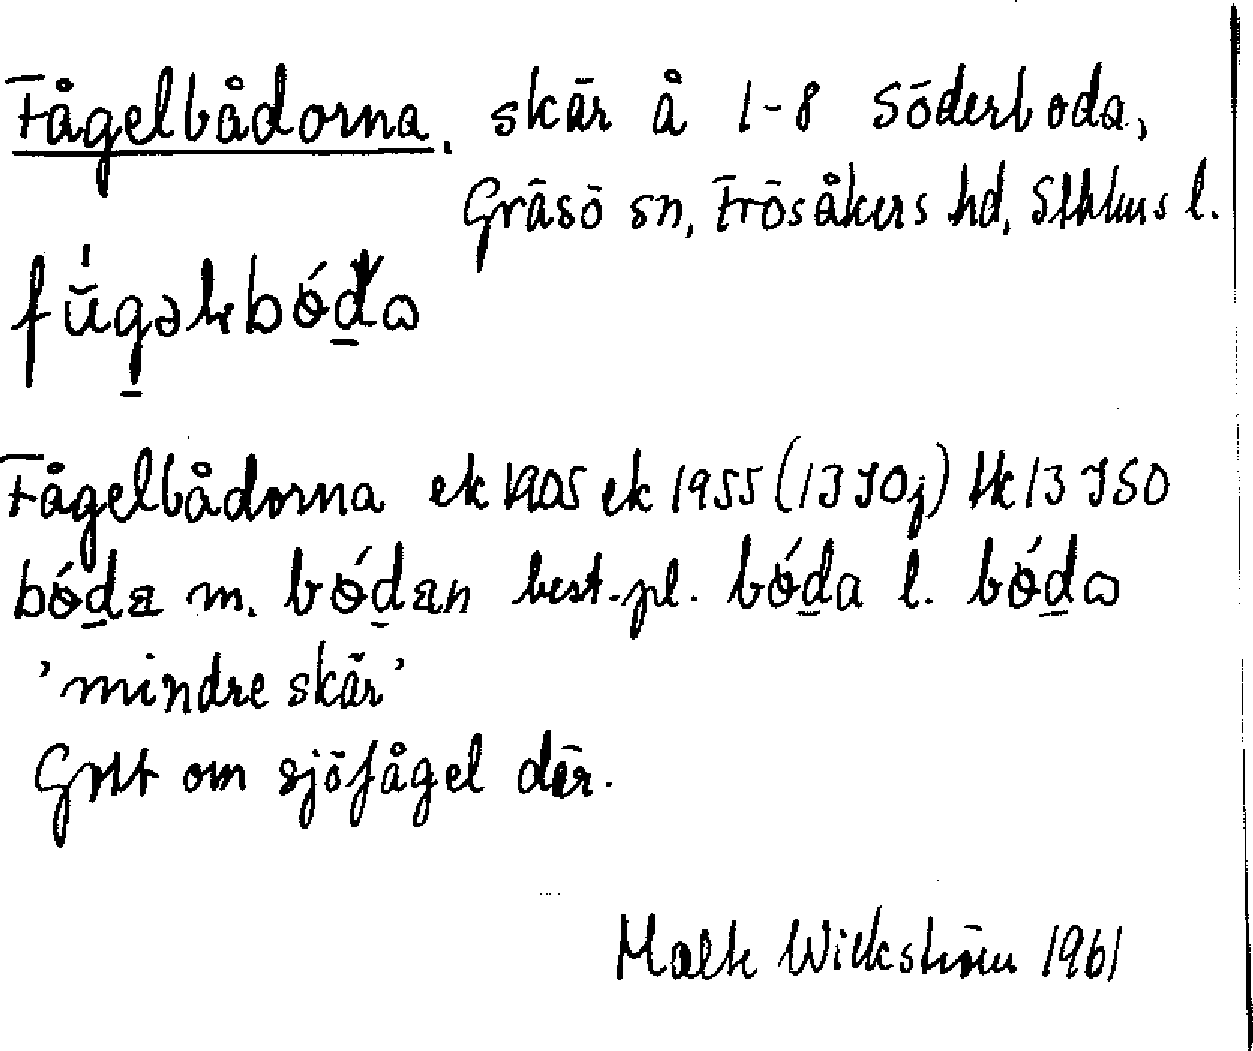 Fågelbådorna. skär å 1-8 Söderboda,
Gräsö sn, Frösåkers hd, Sthlms l.
Fågelbådorna ek 1905 ek 1955 (13 I 0j) Hk 13 I SO
bǿdæ m. bǿdæn best.pl. bǿda l. bǿdω
'mindre skär'
Gott om sjöfågel där.
Malte Wickström 1961